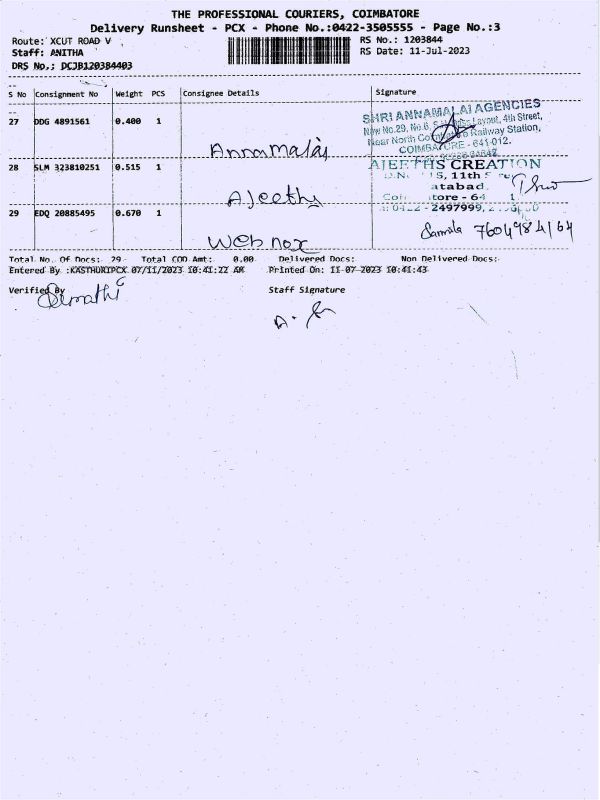 THE PROFESSIONAL COURIERS, COIMBATORE
Delivery Runsheet - PCX - Phone No.:0422-3505555 - Page No.:3
Route: XCUT ROAD V RS No.: 1203844
Staff: ANITHA RS Date: 11-Jul-2023
DRS No.; DCJB120384403
S No Consignment No Weight PCS Consignee Details Signature
27 DDG 4891561 0.400 1 Annamalai
SHRI ANNAMALAI AGENCIES
New No.29, No.6, Layout, 4th Street,
Near North Coimbatore Railway Station,
COIMBATORE - 641-012.
28 SLM 323810251 0.515 1 Ajeeths
AJEETHS CREATION
11th
atabad.
2497999,
29 EDQ 20885495 0.670 1 Webnox
Total No. Of Docs: 29 Total COD Amt: 0.00 Delivered Docs: Non Delivered Docs:
Entered By :KASTHURIPCX 07/11/2023 10:41:22 AM Printed On: 11-07-2023 10:41:43
Verified By Staff Signature